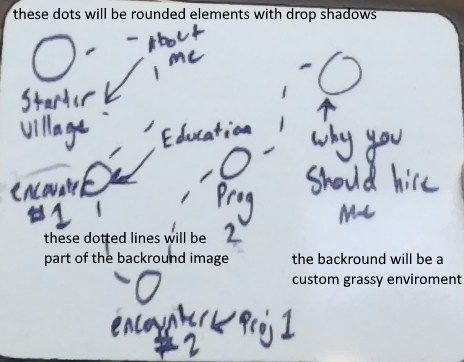 these dots will be rounded elements with drop shadows
About
me
Starter
Village
Education
encounter
#1
why you
Should hire
me
Prog
2
these dotted lines will be
part of the backround image
the backround will be a
custom grassy enviroment
encounter
#2
Proj 1